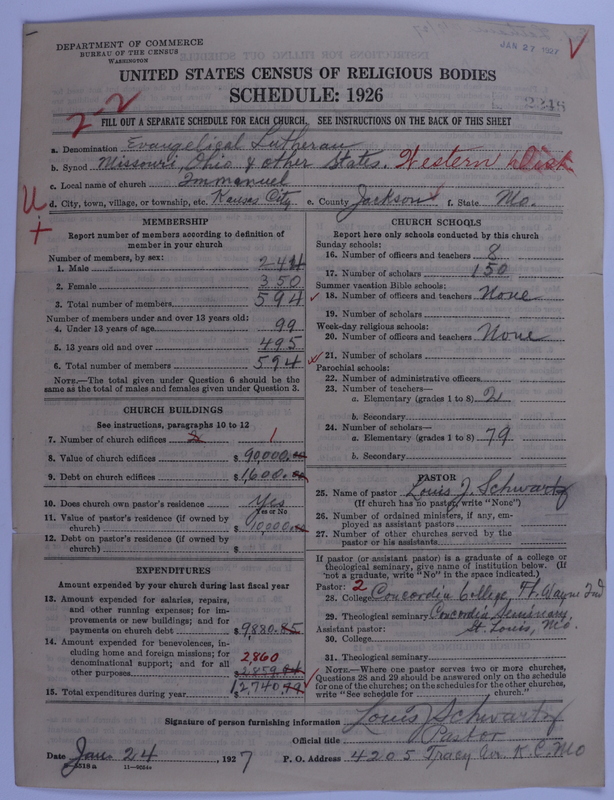 DEPARTMENT OF COMMERCE
BUREAU OF THE CENSUS
WASHINGTON
JAN 27 1927
UNITED STATES CENSUS OF RELIGIOUS BODIES
SCHEDULE: 1926
2-2
FILL OUT A SEPARATE SCHEDULE FOR EACH CHURCH. SEE INSTRUCTIONS ON THE BACK OF THIS SHEET
a. Denomination Evangelical Lutheran
b. Synod Missouri, Ohio & other States. Western Dist
c. Local name of church Immanuel
d. City, town, village, or township, etc. Kansas City e. County Jackson f. State Mo.
U
+
MEMBERSHIP
Report number of members according to definition of
member in your church
Number of members, by sex:
1. Male 244
2. Female 350
3. Total number of members 594
Number of members under and over 13 years old:
4. Under 13 years of age 99
5. 13 years old and over 495
6. Total number of members 594
NOTE.—The total given under Question 6 should be the
same as the total of males and females given under Question 3.
CHURCH BUILDINGS
See instructions, paragraphs 10 to 12
7. Number of church edifices 2 1
8. Value of church edifices $ 90,000.00
9. Debt on church edifices $ 1,600.00
10. Does church own pastor's residence Yes
Yes or No
11. Value of pastor's residence (if owned by
church) $ 10,000.00
12. Debt on pastor's residence (if owned by
church) $
EXPENDITURES
Amount expended by your church during last fiscal year
13. Amount expended for salaries, repairs,
and other running expenses; for im-
provements or new buildings; and for
payments on church debt $ 9,880.85
14. Amount expended for benevolences, in-
cluding home and foreign missions; for
denominational support; and for all
other purposes 2860 $ 2,859
15. Total expenditures during year $ 12,740
CHURCH SCHOOLS
Report here only schools conducted by this church
Sunday schools:
16. Number of officers and teachers 8
17. Number of scholars 150
Summer vacation Bible schools:
18. Number of officers and teachers None
19. Number of scholars
Week-day religious schools:
20. Number of officers and teachers None
21. Number of scholars
Parochial schools:
22. Number of administrative officers
23. Number of teachers—
a. Elementary (grades 1 to 8) 2
b. Secondary
24. Number of scholars—
a. Elementary (grades 1 to 8) 79
b. Secondary
PASTOR
25. Name of pastor Louis J. Schwartz
(If church has no pastor, write "None")
26. Number of ordained ministers, if any, em-
ployed as assistant pastors
27. Number of other churches served by the
pastor or his assistants
If pastor (or assistant pastor) is a graduate of a college or
theological seminary, give name of institution below. (If
not a graduate, write "No" in the space indicated.)
Pastor: 2
28. College Concordia College, Ft. Wayne Ind
29. Theological seminary Concordia Seminary,
Assistant pastor: St. Louis, Mo.
30. College
31. Theological seminary
NOTE.—Where one pastor serves two or more churches,
Questions 28 and 29 should be answered only on the schedule
for one of the churches; on the schedules for the other churches,
write "See schedule for church."
Signature of person furnishing information Louis J Schwartz
Official title Pastor
Date Jan. 24, 1927 P. O. Address 4205 Tracy Av. K.C. Mo
11—9034